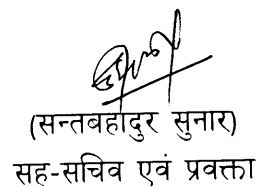 (सन्तबहादुर सुनार)
सह-सचिव एवं प्रवक्ता